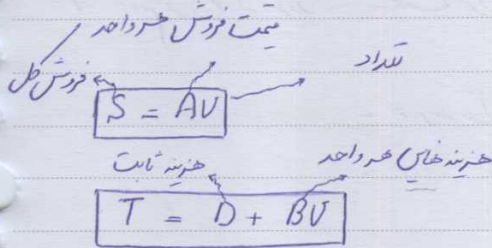 قیمت فروش هر واحد
تعداد
فروش کل
S = AU
هزینه ثابت
هزینه خاص هر واحد
T = D + BU